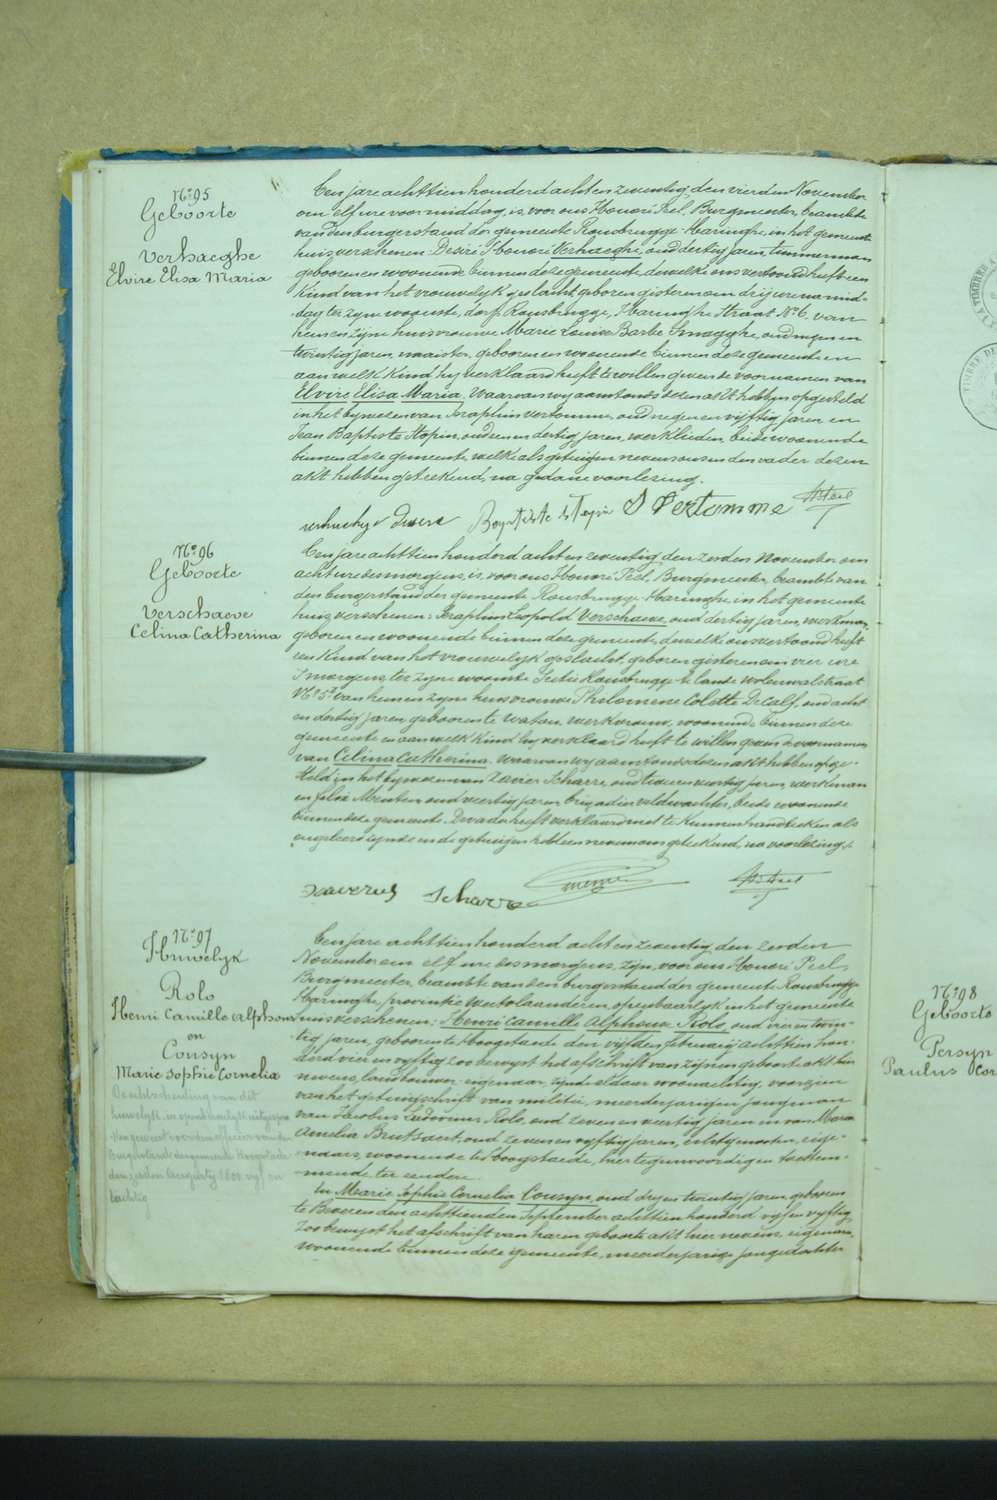 N.º 95
Geboorte
Verhaeghe
Elvire Elisa Maria
Een jare achttien honderd acht en zeventig, den vierden November
om elf ure voormiddag, is, voor ons Honoré Peel, Burgmeester, beambte
van den burgerstand der gemeente Rousbrugge-Haringhe, in het gemeente
huis verschenen: Desiré Honoré Verhaeghe, oud dertig jaren, timmerman
geboren en woonende binnen deze gemeente, dewelke ons vertoond heeft een
kind van het vrouwelijk geslacht, geboren gisteren om drij ure namid-
dag ter zijne woonste, dorp Rousbrugge, Haringhe Straat Nº 6, van
hem en zijne huisvrouwe Marie Louise Barbe Smagghe, oud negen en
twintig jaren, naaister, geboren en woonende binnen deze gemeente en
aan welk kind hij verklaard heeft te willen geven de voornamen van
Elvire Elisa Maria. Waarvan wij aanstonds dezen akt hebben opgesteld
in het bijwezen van Seraphin Vertomme, oud negen en vijftig jaren, en
Jean Baptiste Stopin, oud een en dertig jaren, werklieden, beide woonende
binnen deze gemeente, welke als getuigen nevens ons en den vader dezen
akt hebben geteekend, na gedane voorlezing.
Baptiste Stopin S Vertomme
N.º 96
Geboorte
Verschaeve
Celina Catherina
Een jare achttien honderd acht en zeventig, den zesden November om
acht ure des morgens, is, voor ons Honoré Peel, Burgmeester, beambte van
den burgerstand der gemeente Rousbrugge-Haringhe, in het gemeente
huis verschenen: Seraphin Leopold Verschaeve, oud dertig jaren, werkman,
geboren en woonende binnen deze gemeente, dewelke ons vertoond heeft
een kind van het vrouwelijk geslacht, geboren gisteren om vier ure
's morgens, ter zijne woonste Sectie Rousbrugge te lande
Nº 5, van hem en zijne huisvrouwe Philomene Colette Decalf, oud acht
en dertig jaren geboren te Watou, werkvrouw, woonende binnen deze
gemeente en aan welk kind hij verklaard heeft te willen geven de voornamen
van Celina Catherina. Waarvan wij aanstonds dezen akt hebben opge-
steld in het bijwezen van Xavier Scharre, oud twee en veertig jaren, werkman
en Felix oud veertig jaren, brigadier veldwachter, beide woonende
binnen deze gemeente. De vader heeft verklaard niet te kunnen handteeken als
ongeleerd zijnde en de getuigen hebben nevens ons geteekend, na voorlezing.
Xaverus Scharre
N.º 97
Huwelijk
Rolo
Henri Camille Alphons
en
Cousyn
Marie Sophie Cornelia
De echtscheiding van dit
huwelijk, is openbaarlijk uitgespro-
ken geweest voor den officier van den
Burgerstand der gemeente Hoogstade
den
tachtig
Een jare achttien honderd acht en zeventig den zesden
November om elf ure des morgens, zijn, voor ons Honoré Peel,
Burgmeester, beambte van den burgerstand der gemeente Rousbrugge
Haringhe, provintie Westvlaanderen, openbaarlijk in het gemeente
huis verschenen: Henri Camille Alphons Rolo, oud vier en twin-
tig jaren, geboren te Hoogstaede den vijfden februarij achttien hon-
derd vier en vijftig zoo bewijst het afschrift van zijnen geboorte akt hier
nevens, landbouwer eigenaar, zijnde aldaar woonachtig, voorzien
van het getuigschrift van militie, meerderjarigen jongman
van Jacobus Ludovicus Rolo, oud zeven en veertig jaren en van Maria
Amelia Brutsaert, oud zeven en vijftig jaren, echtgenooten, eige-
naars, woonende te Hoogstaede, hier tegenwoordig en toestem-
mende, ter eendere
En Marie Sophie Cornelia Cousyn, oud drij en twintig jaren, geboren
te Beveren den achttienden September achttien honderd vijf en vijftig
zoo bewijst het afschrift van haren geboorte akt hier nevens, eigenares,
woonende binnen deze gemeente, meerderjarige jongedochter
N.º 98
Geboorte
Persyn
Paulus Cor